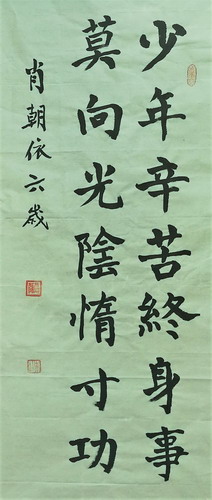 少年辛苦終身事
莫向光陰惰寸功
肖朝依六歲